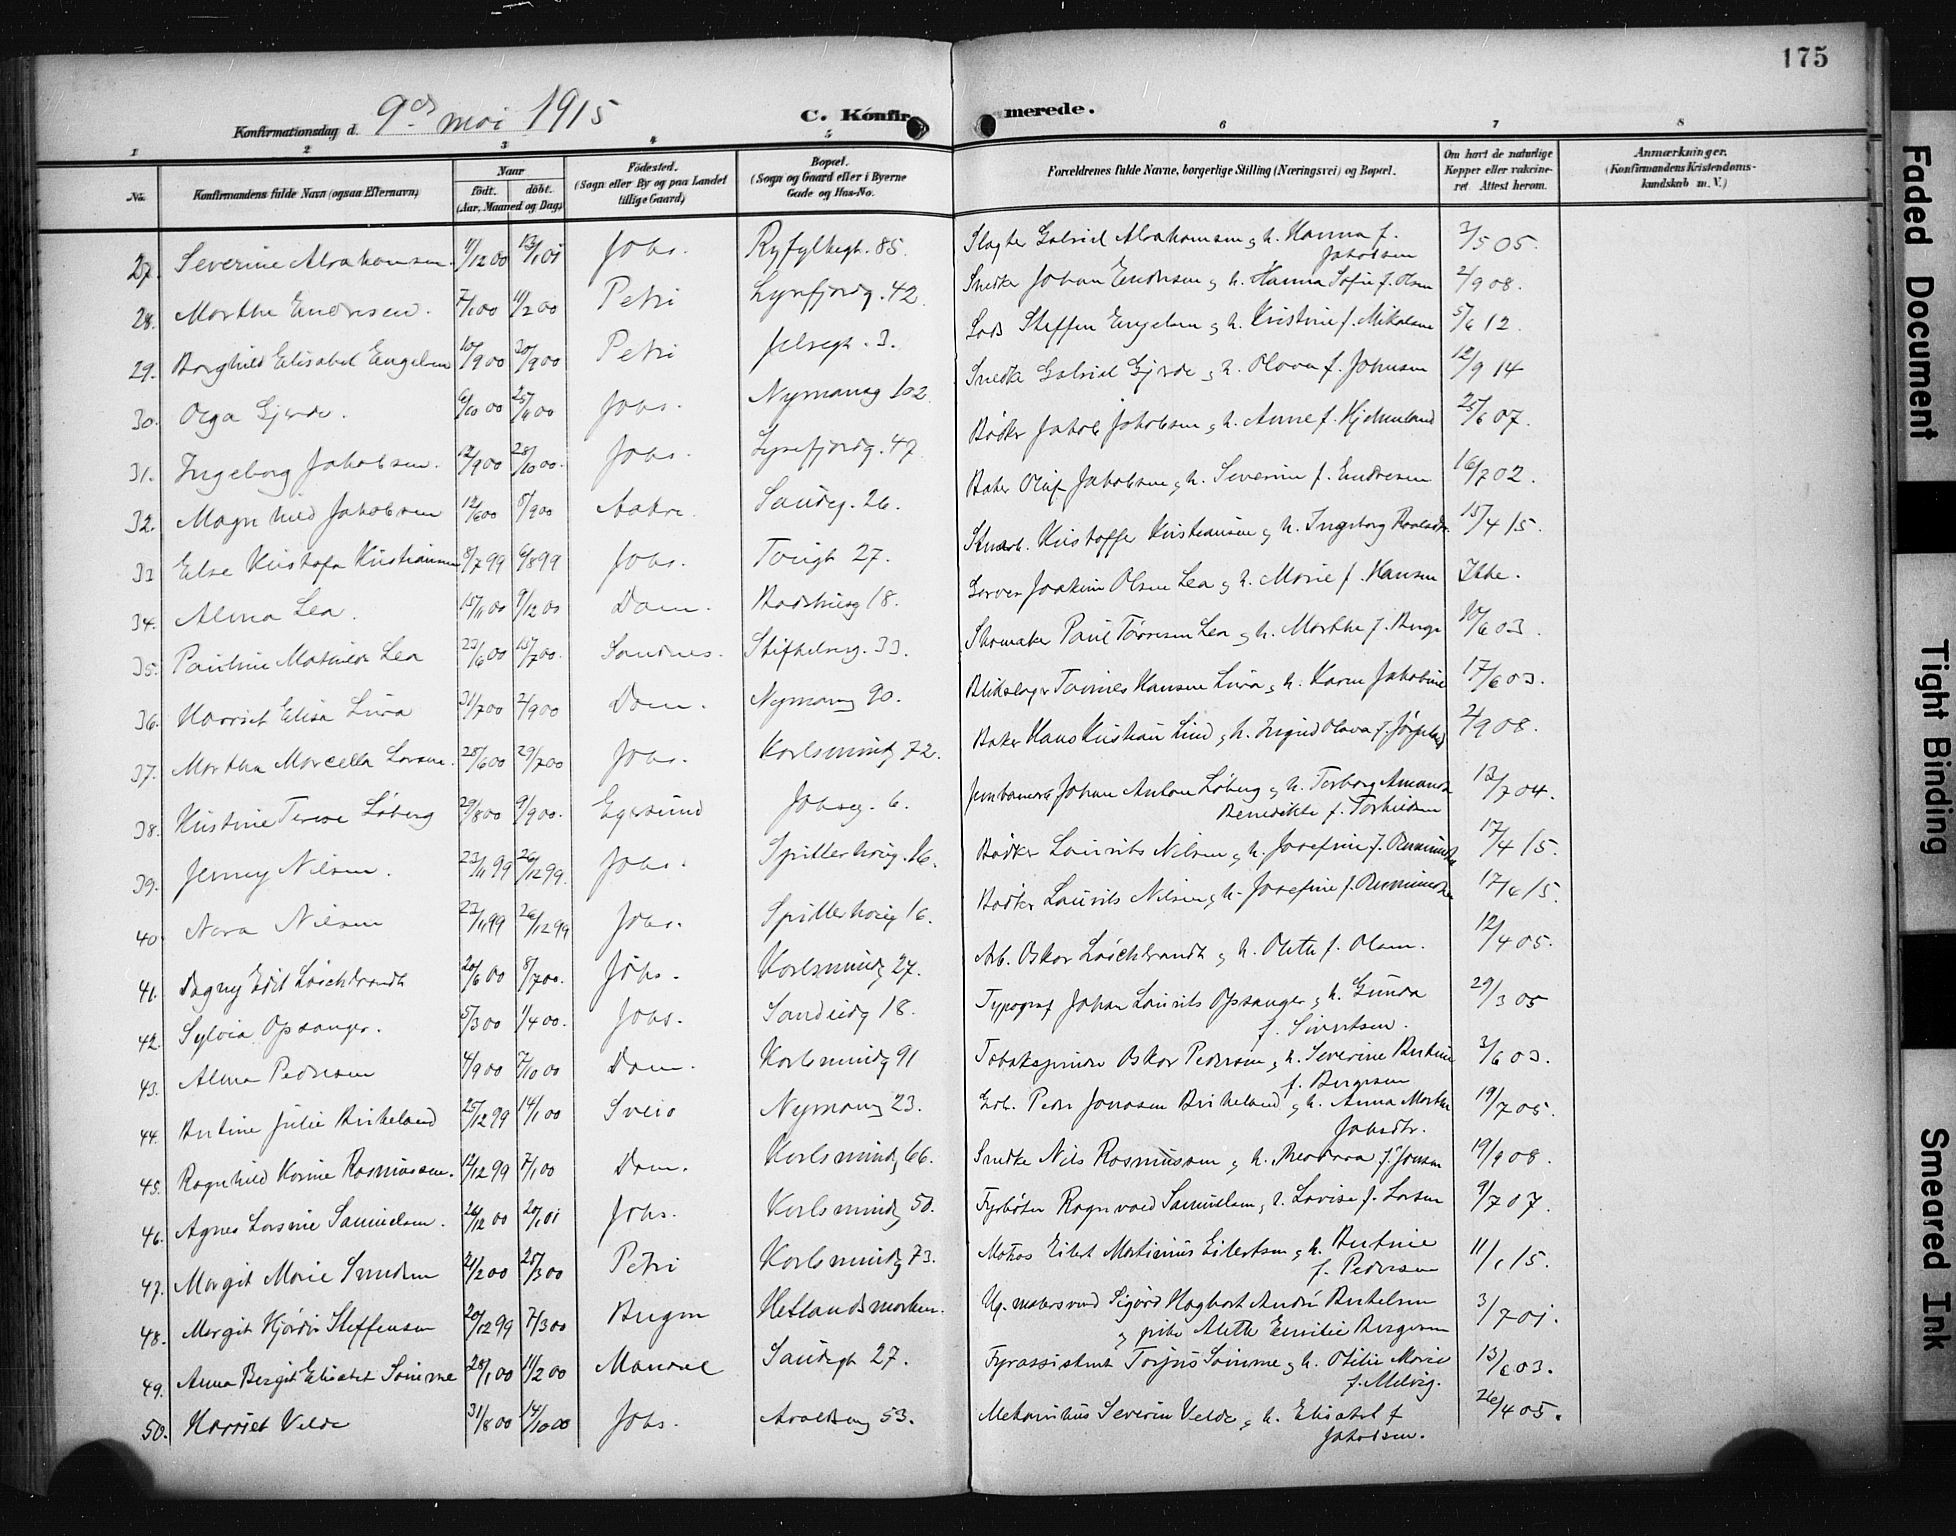 175
Konfirmationsdag d. 9de mai 1915
C. Konfirmerede.
1 2 3 4 5 6 7 8
No.
Konfirmandens fulde Navn (ogsaa Efternavn)
Naar
født. døbt.
(Aar, Maaned og Dag)
Fødested.
(Sogn eller By og paa Landet
tillige Gaard)
Bopæl.
(Sogn og Gaard eller i Byerne
Gade og Hus-No.
Forældrenes fulde Navne, borgerlige Stilling (Næringsvei) og Bopæl.
Om havt de naturlige
Kopper eller vakcine-
ret Attest herom.
Anmærkninger.
(Konfirmandens Kristendoms-
kundskab m. V.)
27. Severine Abrahamsen 11/12 00 13/1 01 Johs. Ryfylkegt. 85. Slagter Gabriel Abrahamsen og h. Hanna f. 2/5 05.
Jakobsen
28. Marthe Endresen. 7/1 00 11/2 00 Petri Lysefjordg. 42. Snedker Johan Endresen og h. Hanna Sofie f. Olsen 2/9 08.
29. Borghild Elisabet Engelsen 10/9 00 30/9 00 Petri Jelsegt. 3. Lods Steffen Engelsen og h. Kristine f. Mikalsen 5/6 12.
30. Olga Gjerde. 6/10 00 25/11 00 Johs. Nymansg 102 Snedker Gabriel Gjerde og h. Olava f. Johnsen 12/9 14
31. Ingeborg Jakobsen. 12/9 00 28/10 00. Johs. Lysefjordg. 47 Bødker Jakob Jakobsen og h. Anne f. Hjelmeland 25/6 07.
32. Magnhild Jakobsen 12/6 00 5/9 00 Aakre. Sandeg. 26. Baker Oluf Jakobsen og h. Severine f. Endresen 16/7 02.
33 Else Kristofa Kristiansen 8/7 99 6/8 99 Johs. Tougt 27. Stuearb. Kristoffer Kristiansen og h. Ingeborg 15/4 15.
34. Alma Lea. 15/11 00 9/12 00 Dom. Badstueg 18. Garver Joakim Olsen Lea og h. Marie f. Hansen Ikke.
35. Pauline Mathilde Lea 23/6 00 15/7 00. Sandnes. Stiftelsesg. 33. Skomaker Paul Tønnesen Lea og h. Marthe f. Berge 10/6 03.
36. Harriet Elisa Lura 31/7 00 2/9 00 Dom. Nymansg 90. Blikslager Tønnes Hansen Lura og h. Karen Jakobine 17/6 03.
37. Martha Marcella Larsen. 28/6 00 29/7 00 Johs. Karlsmindeg 72. Baker Hans Kristian Lind og h. Ingrid Olava f. Jørpeland 2/9 08.
38. Kristine Terese Løberg 29/8 00 9/9 00. Egersund Johsg. 6. Johan Anton Løberg og h. Torborg Amanda 13/7 04.
Benedikte f. Torkildsen
39. Jenny Nilsen. 23/11 99 26/12 99. Johs. Spilderhaug. 16. Bødker Laurits Nilsen og h. Josefine f. 17/4 15.
40. Nora Nilsen 23/11 99 26/12 99 Johs. Spilderhaug 16. Bødker Laurits Nilsen og h. Josefine f. 17/4 15.
41. Dagny Edit Løschbrandt 20/6 00 8/7 00. Johs. Karlsmindeg 27. Arb. Oskar Løschbrandt og h. Olette f. Olsen. 12/4 05.
42. Sylvia Opsanger. 5/3 00 1/4 00. Johs. Sandeidg 18. Typograf Johan Laurits Opsanger og h. Gunda 29/3 05
f. Sivertsen.
43. Alma Pedersen 4/9 00 7/10 00 Dom. Karlsmindeg 91 Tobakspinder Oskar Pedersen og h. Severine Bertine 3/6 03.
f. Bergesen
44. Bertine Julie Birkeland 25/12 99 14/1 00 Sveio Nymansg 23. Peder Jonasen Birkeland og h. Anna Marthe 19/7 05.
Jakobdtr.
45. Ragnhild Karine Rasmussen. 12/12 99 7/1 00 Dom. Karlsmindeg 66. Snedker Nils Rasmussen og h. Theodora f. Jonsen 19/9 08.
46. Agnes Lovise Samuelsen. 24/12 00 20/1 01 Johs. Karlsmindeg 50. Fyrbøter Ragnvald Samuelsen og h. Lovise f. Larsen 9/7 07.
47. Margit Marie Knudsen 21/2 00 25/3 00 Petri Karlsmindeg 73. Matros Eilert Martinius Eilertsen og h. Bertine 11/1 15.
f. Pedersen
48. Margit Hjørdis Steffensen 20/12 99 7/3 00 Bergen Hetlandsmarken. Sigurd Hagbart André Bertelsen 3/7 01.
og pike Alette Emilie Bergersen
49. Anna Bergit Elisabet Sømme 28/1 00 11/2 00 Mandal Sandegt 27. Fyrassistent Torjus Sømme og h. Otilie Marie 13/6 03.
f. Melvig.
50. Harriet Velde 31/8 00 14/10 00 Johs. Avaldsneg 53. Mekanikus Severin Velde og h. Elisabet f 26/4 05.
Jakobsen.
Faded Document
Tight Binding
Smeared Ink